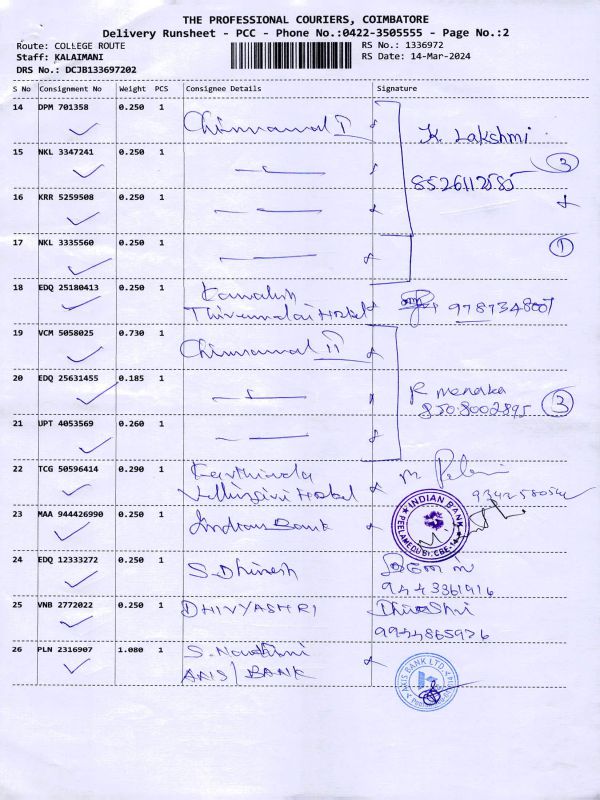 THE PROFESSIONAL COURIERS, COIMBATORE
Delivery Runsheet - PCC - Phone No.:0422-3505555 - Page No.:2
Route: COLLEGE ROUTE
RS No.: 1336972
Staff: KALAIMANI
RS Date: 14-Mar-2024
DRS No.: DCJB133697202
S No Consignment No Weight PCS Consignee Details Signature
14 DPM 701358 0.250 1
K. Lakshmi
15 NKL 3347241 0.250 1
3
8526112585
16 KRR 5259508 0.250 1
17 NKL 3335560 0.250 1
1
18 EDQ 25180413 0.250 1
Hostel
19 VCM 5058025 0.730 1
II
20 EDQ 25631455 0.185 1
R menaka
8508002895 3
21 UPT 4053569 0.260 1
22 TCG 50596414 0.290 1
Hostel
23 MAA 944426990 0.250 1 Indian Bank
INDIAN BANK
PEELAMEDU Br. CBE-14
24 EDQ 12333272 0.250 1 S. Dhinesh
9443361916
25 VNB 2772022 0.250 1 DHIVYASHRI
9944865926
26 PLN 2316907 1.080 1
AXIS BANK
AXIS BANK LTD.